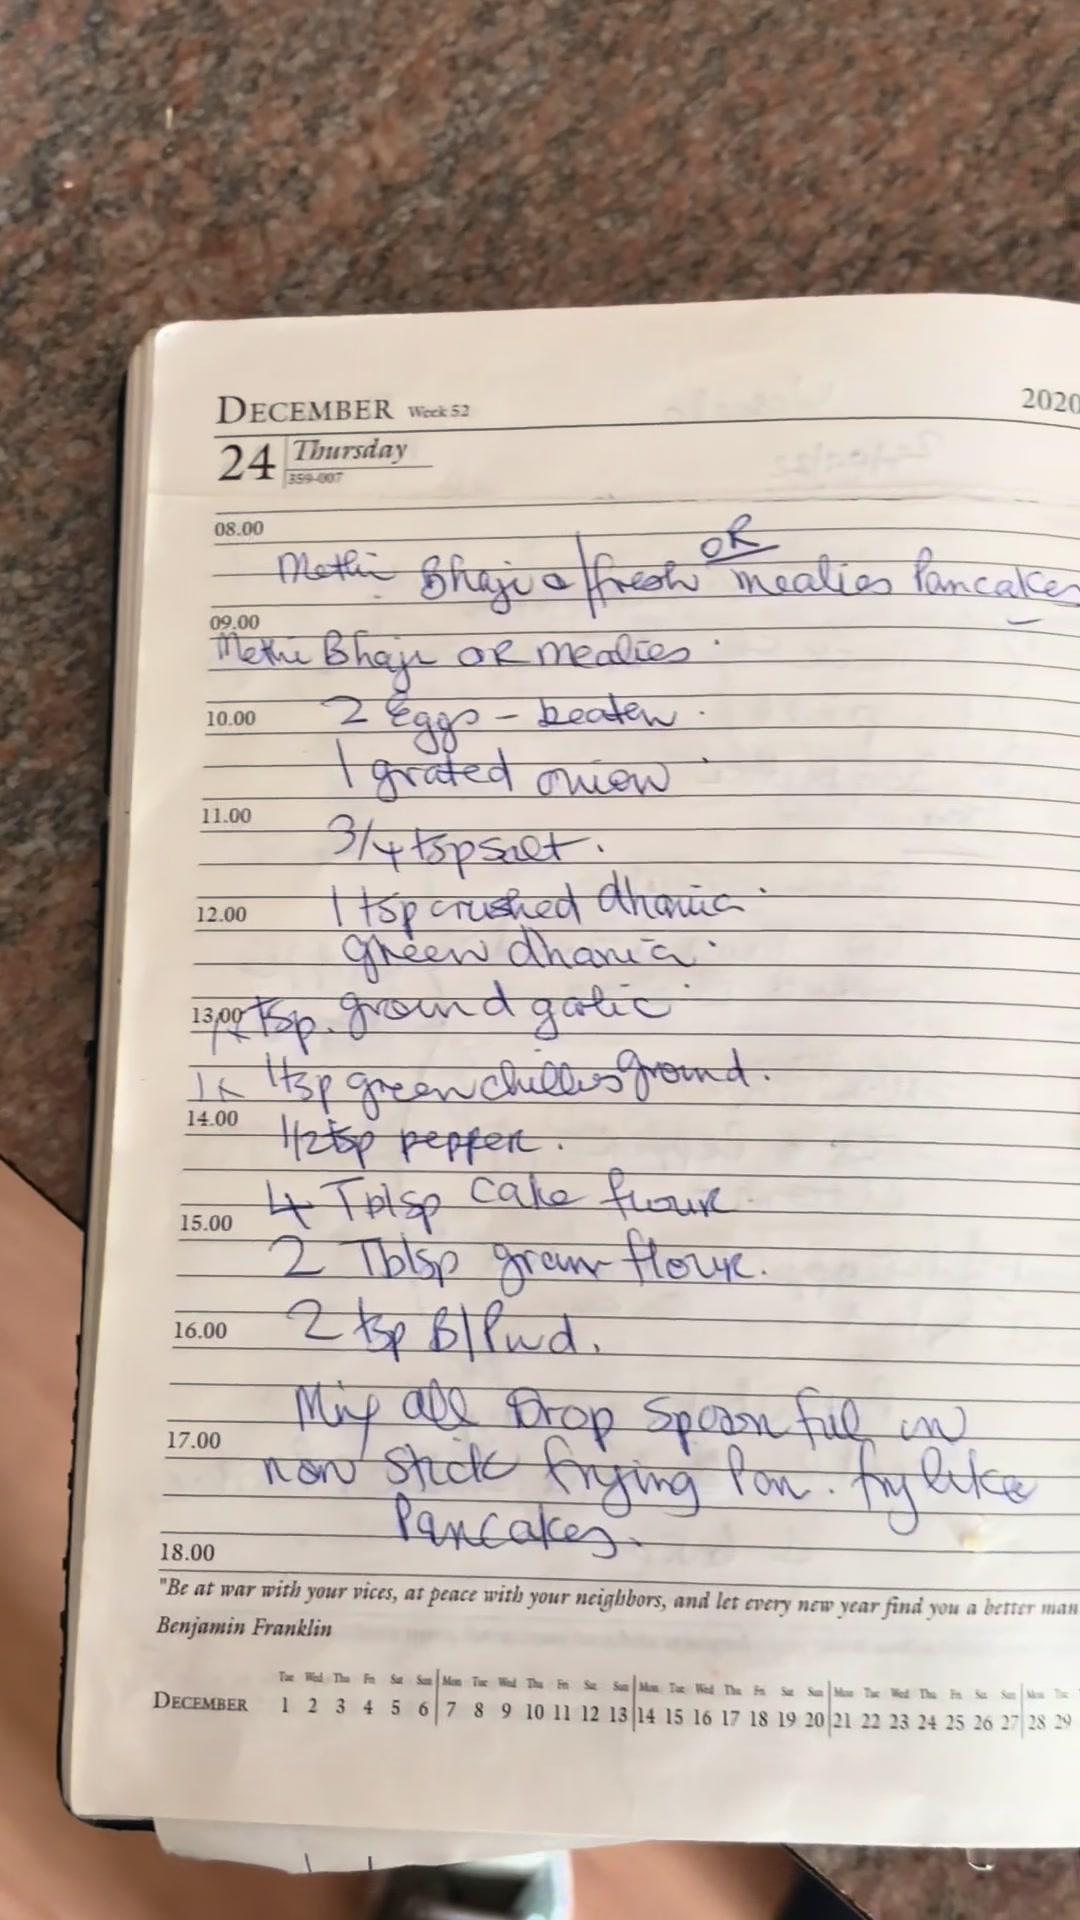 DECEMBER Week 52 2020
24 Thursday
359-007
08.00
OR
Methi Bhaji / fresh mealies Pancakes
09.00
Methi Bhaji OR mealies
10.00 2 Eggs - beaten
1 grated onion
11.00
3/4 tsp salt.
12.00 1 tsp crushed dhania
green dhania
13.00 tsp. ground garlic
1 tsp green chillies ground.
14.00
1/2 tsp pepper.
4 Tblsp cake flour
15.00
2 Tblsp gram flour.
16.00 2 tsp B/Pwd.
Mix all Drop spoon full in
17.00
non stick frying Pan. fry like
Pancakes.
18.00
"Be at war with your vices, at peace with your neighbors, and let every new year find you a better man
Benjamin Franklin
Tue Wed Thu Fri Sat Sun Mon Tue Wed Thu Fri Sat Sun Mon Tue Wed Thu Fri Sat Sun Mon Tue Wed Thu Fri Sat Sun Mon Tue
DECEMBER 1 2 3 4 5 6 7 8 9 10 11 12 13 14 15 16 17 18 19 20 21 22 23 24 25 26 27 28 29